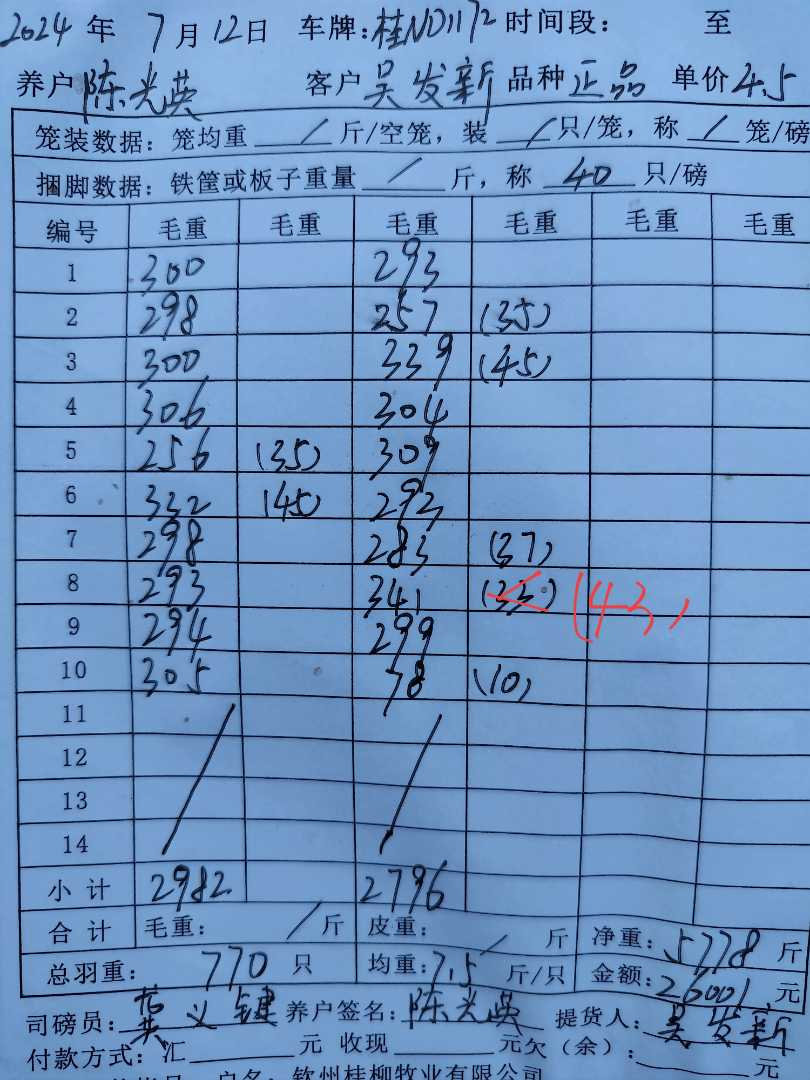 2024 年 7 月 12 日 车牌: 桂ND1172 时间段: 至
养户 陈光英 客户 吴发新 品种 正品 单价 4.5
笼装数据: 笼均重 / 斤/空笼, 装 / 只/笼, 称 / 笼/磅
捆脚数据: 铁筐或板子重量 / 斤, 称 40 只/磅
编号 毛重 毛重 毛重 毛重 毛重 毛重
1 300 293
2 298 257 (35)
3 300 339 (45)
4 306 304
5 256 (35) 309
6 332 (45) 293
7 298 283 (37)
8 293 341 (33) (43)
9 294 299
10 305 78 (10)
11
12
13
14
小计 2982 2796
合计 毛重: / 斤 皮重: / 斤 净重: 5778 斤
总羽重: 770 只 均重: 7.5 斤/只 金额: 26001 元
司磅员: 义键 养户签名: 陈光英 提货人: 吴发新
付款方式: 汇 元 收现 元 欠(余): 元
户名: 钦州桂柳牧业有限公司